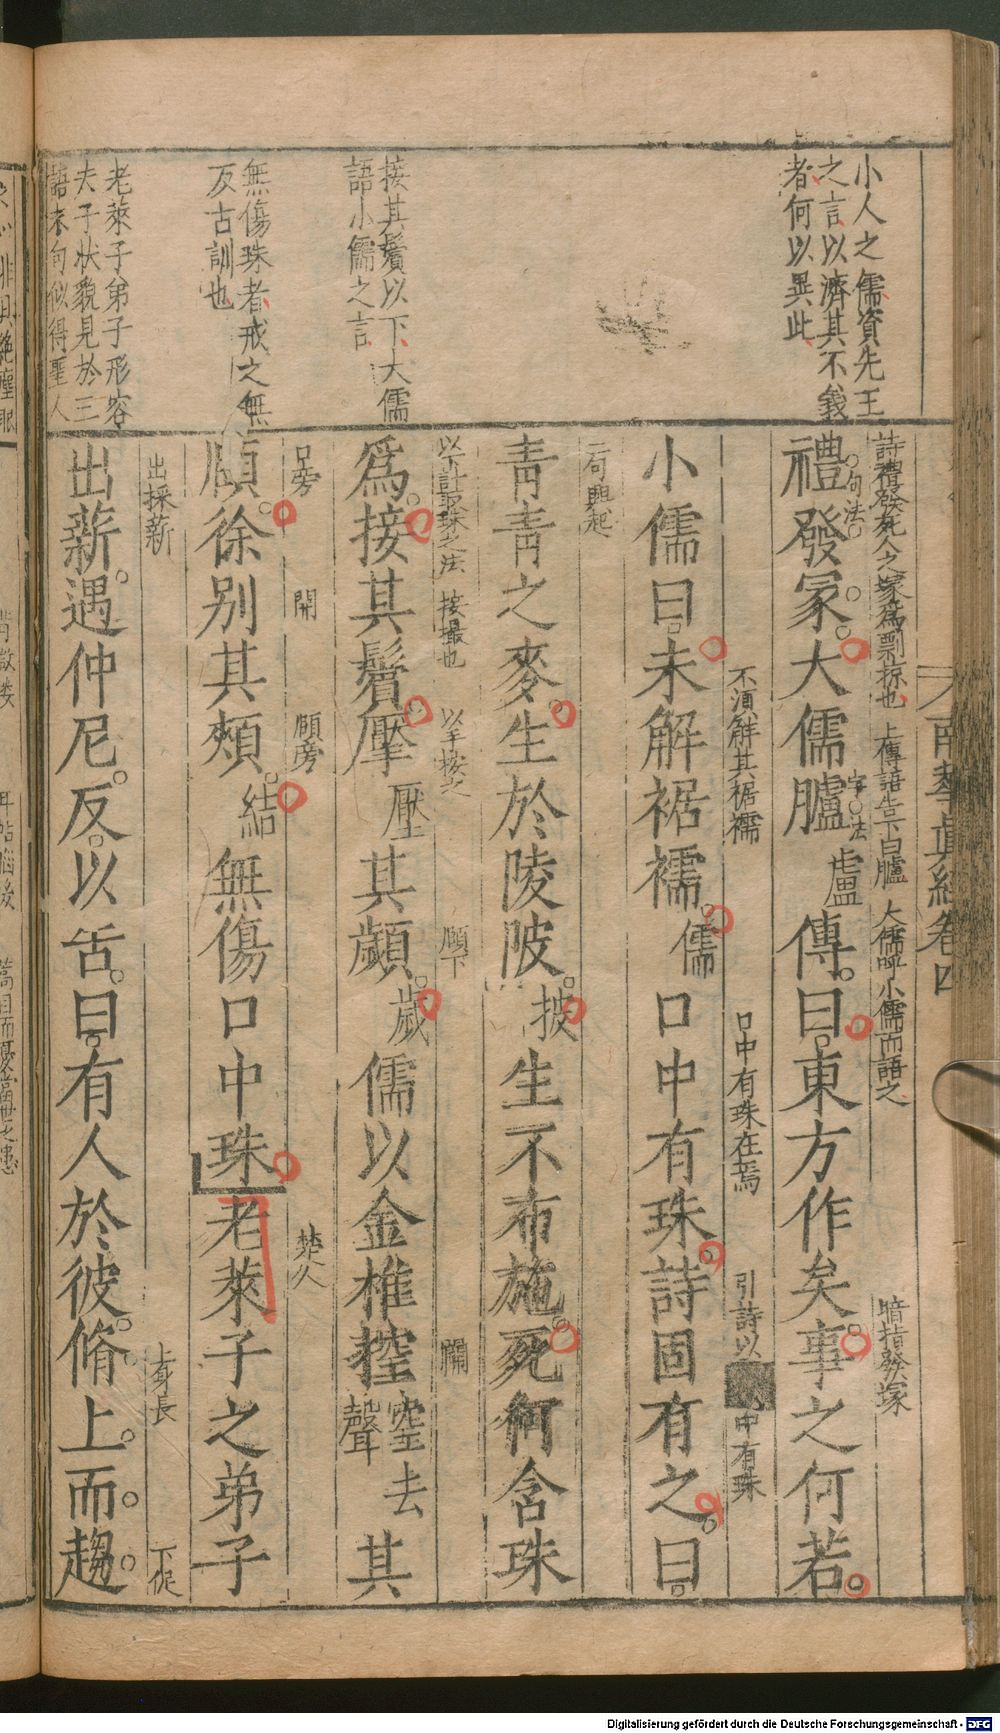 南華真經卷四
小人之儒資先王
之言以濟其不義
者何以異此
接其鬢以下大儒
語小儒之言
無傷珠者戒之無
反古訓也
老萊子弟子形容
夫子狀貌見於三
語末句似得聖人
詩禮發死人之塚為剽掠也 上傳語告下曰臚 大儒呼小儒而語之 暗指發塚
句法 字法
禮發冢大儒臚盧傳曰東方作矣事之何若
不須解其裾襦 口中有珠在焉 引詩以 中有珠
小儒曰未解裾襦儒口中有珠詩固有之曰
二句興起
青青之麥生於陵陂披生不布施死何含珠
以下計取珠之法 接撮也 以手按之 頤下
為接其鬢擪壓其顪歲儒以金椎控空去聲其
口旁 開 頤旁 楚人
頤徐別其頰結無傷口中珠老萊子之弟子
出採薪 上身長 下促
出薪遇仲尼反以告曰有人於彼脩上而趨
Digitalisierung gefördert durch die Deutsche Forschungsgemeinschaft - DFG